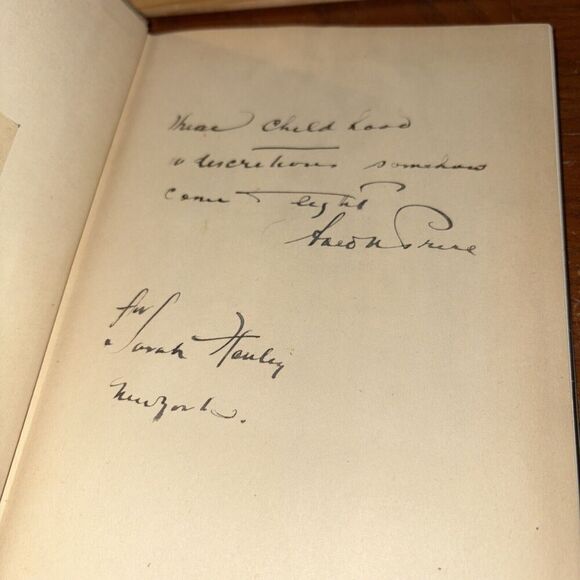 These Childhood
indiscretions somehow
come to light
for
Sarah Henley
New York.